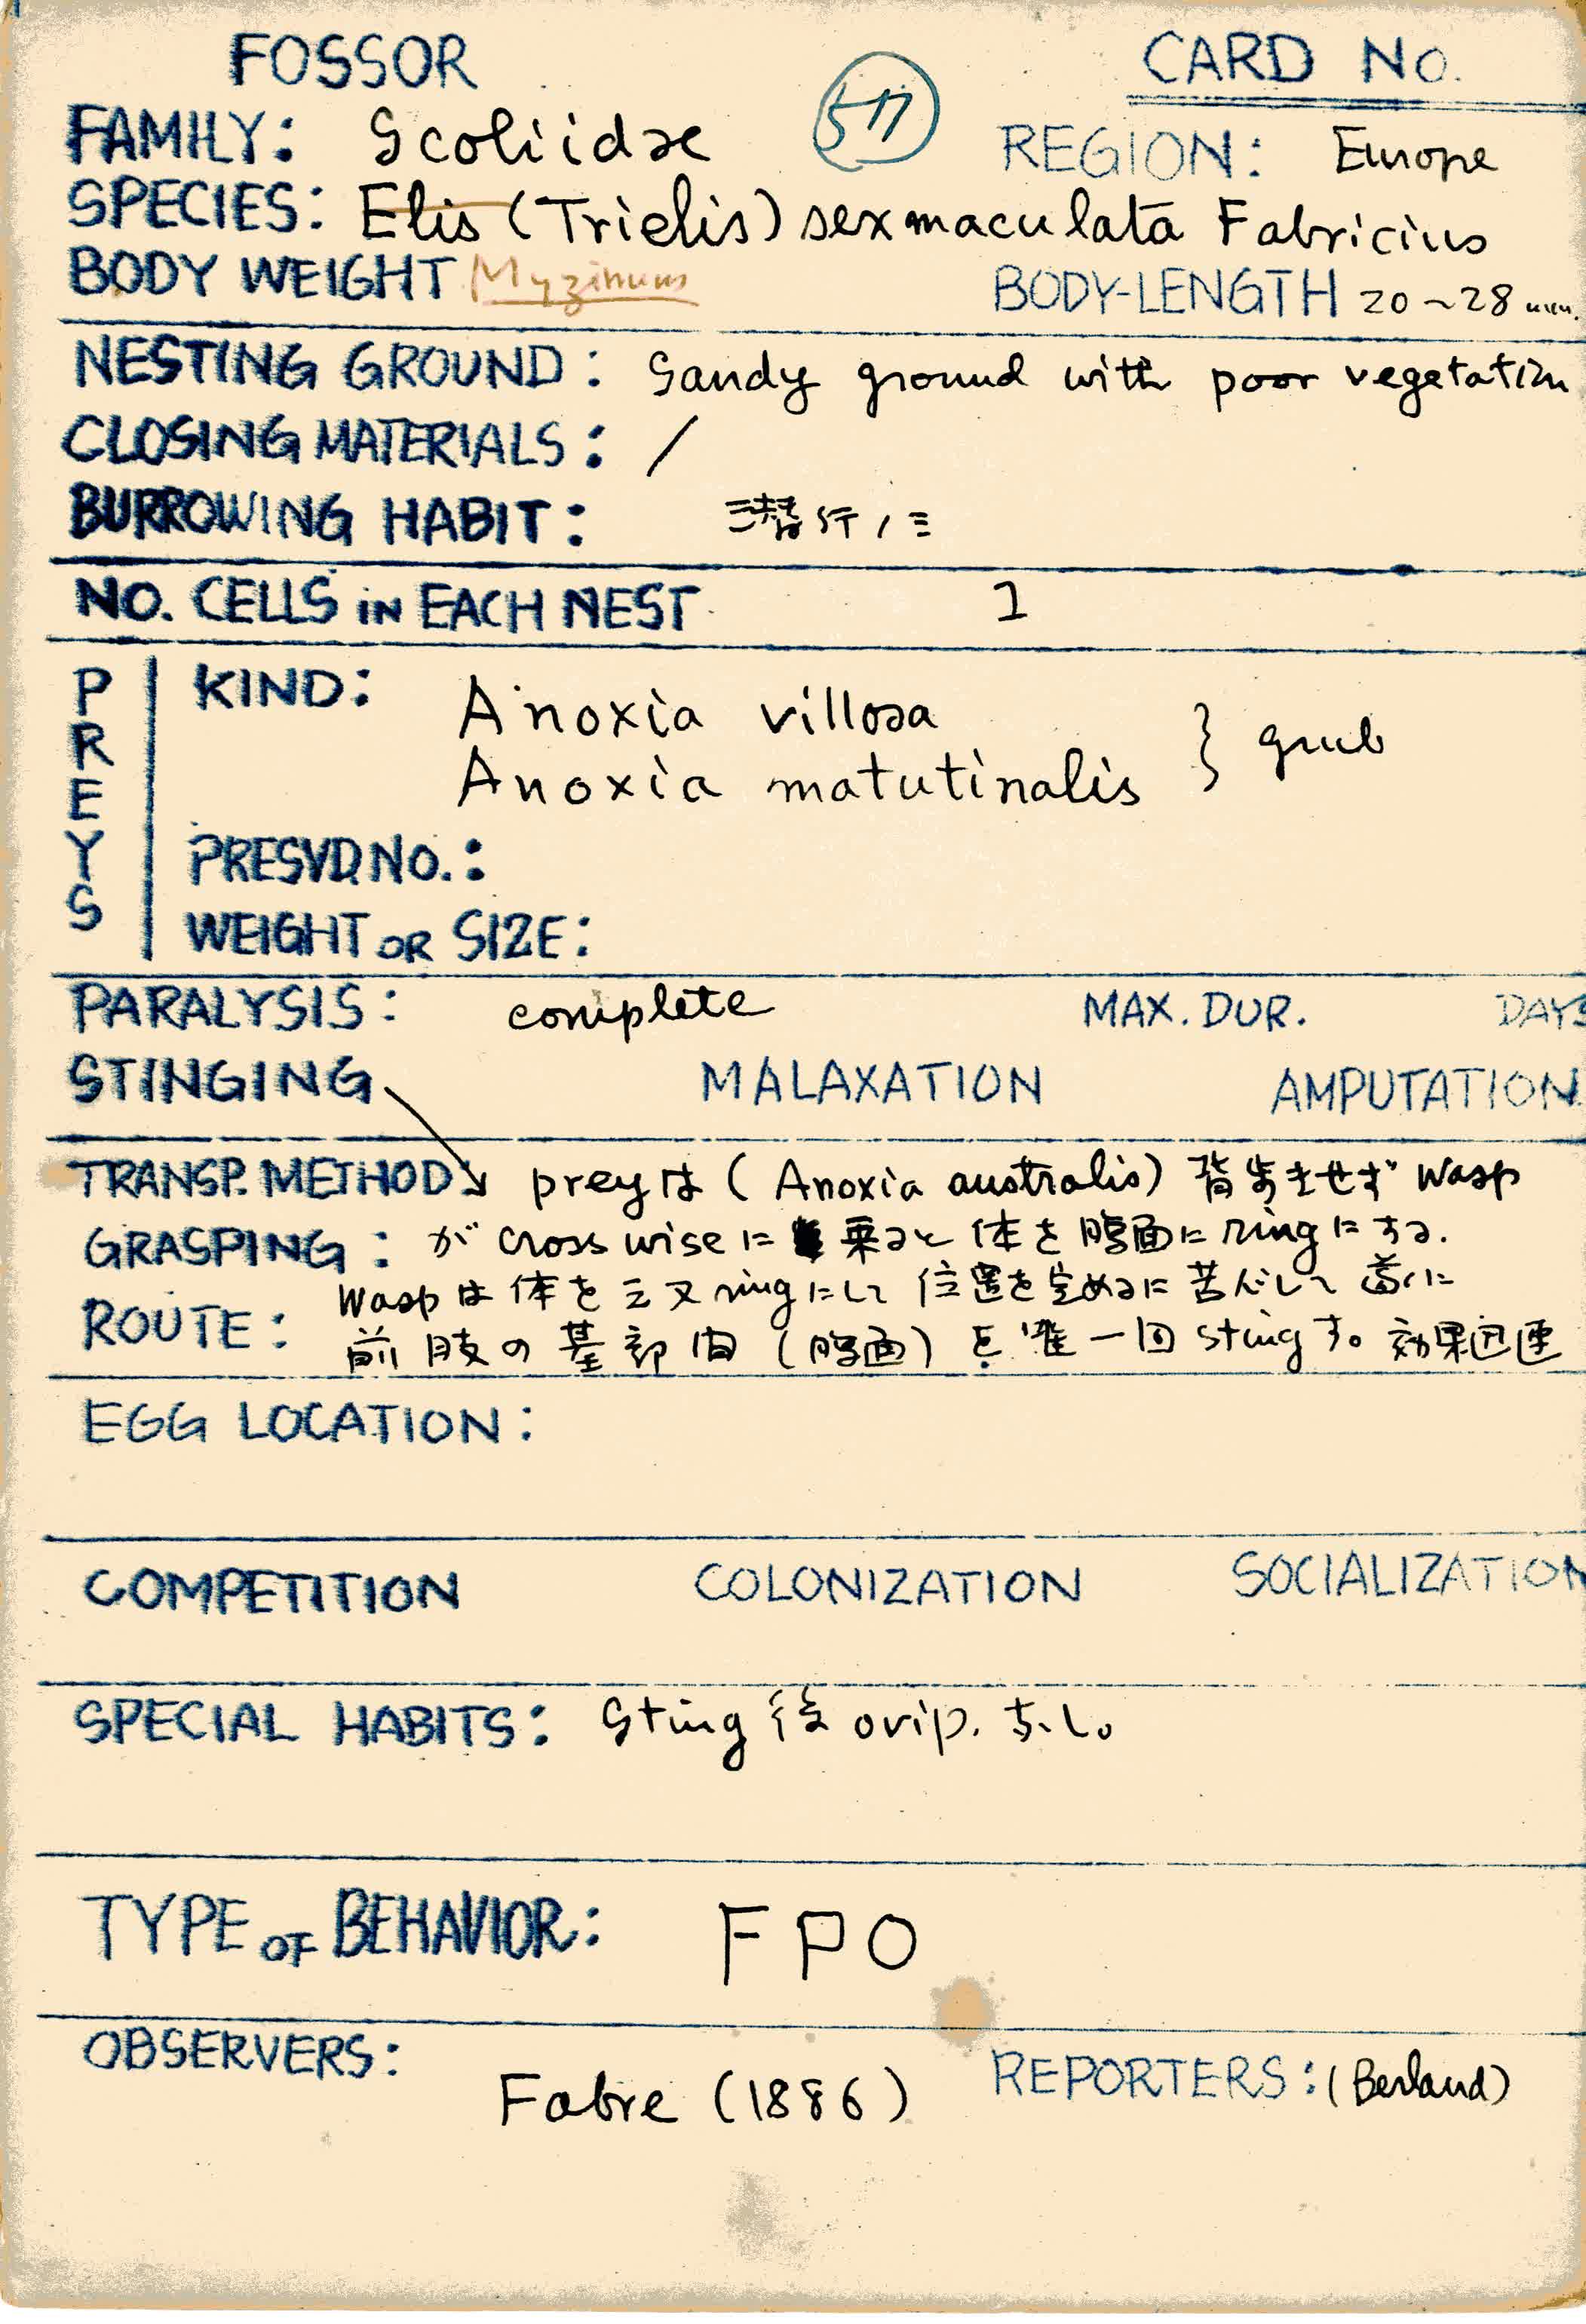 FOSSOR
CARD No.
577
FAMILY: Scoliidae
REGION: Europe
SPECIES: Elis (Trielis) sexmaculata Fabricius
BODY WEIGHT Myzinum
BODY-LENGTH 20~28 mm.
NESTING GROUND: Sandy ground with poor vegetation
CLOSING MATERIALS: /
BURROWING HABIT: 潜行ノミ
NO. CELLS IN EACH NEST 1
PREYS
KIND: Anoxia villosa
Anoxia matutinalis } grub
PRESVD NO.:
WEIGHT OR SIZE:
PARALYSIS: complete MAX. DUR. DAYS
STINGING MALAXATION AMPUTATION
TRANSP. METHOD prey は (Anoxia australis) 背歩きせず wasp
GRASPING: が cross wise に 乗ると 体を 腹面に ring にする.
ROUTE: wasp は 体を 又 ring にして 位置を定めるに 苦心して 遂に
前肢の基部間 (腹面) を 唯一回 sting す。効果迅速
EGG LOCATION:
COMPETITION COLONIZATION SOCIALIZATION
SPECIAL HABITS: Sting 後 ovip. なし。
TYPE OF BEHAVIOR: FPO
OBSERVERS: Fabre (1886)
REPORTERS: (Berland)